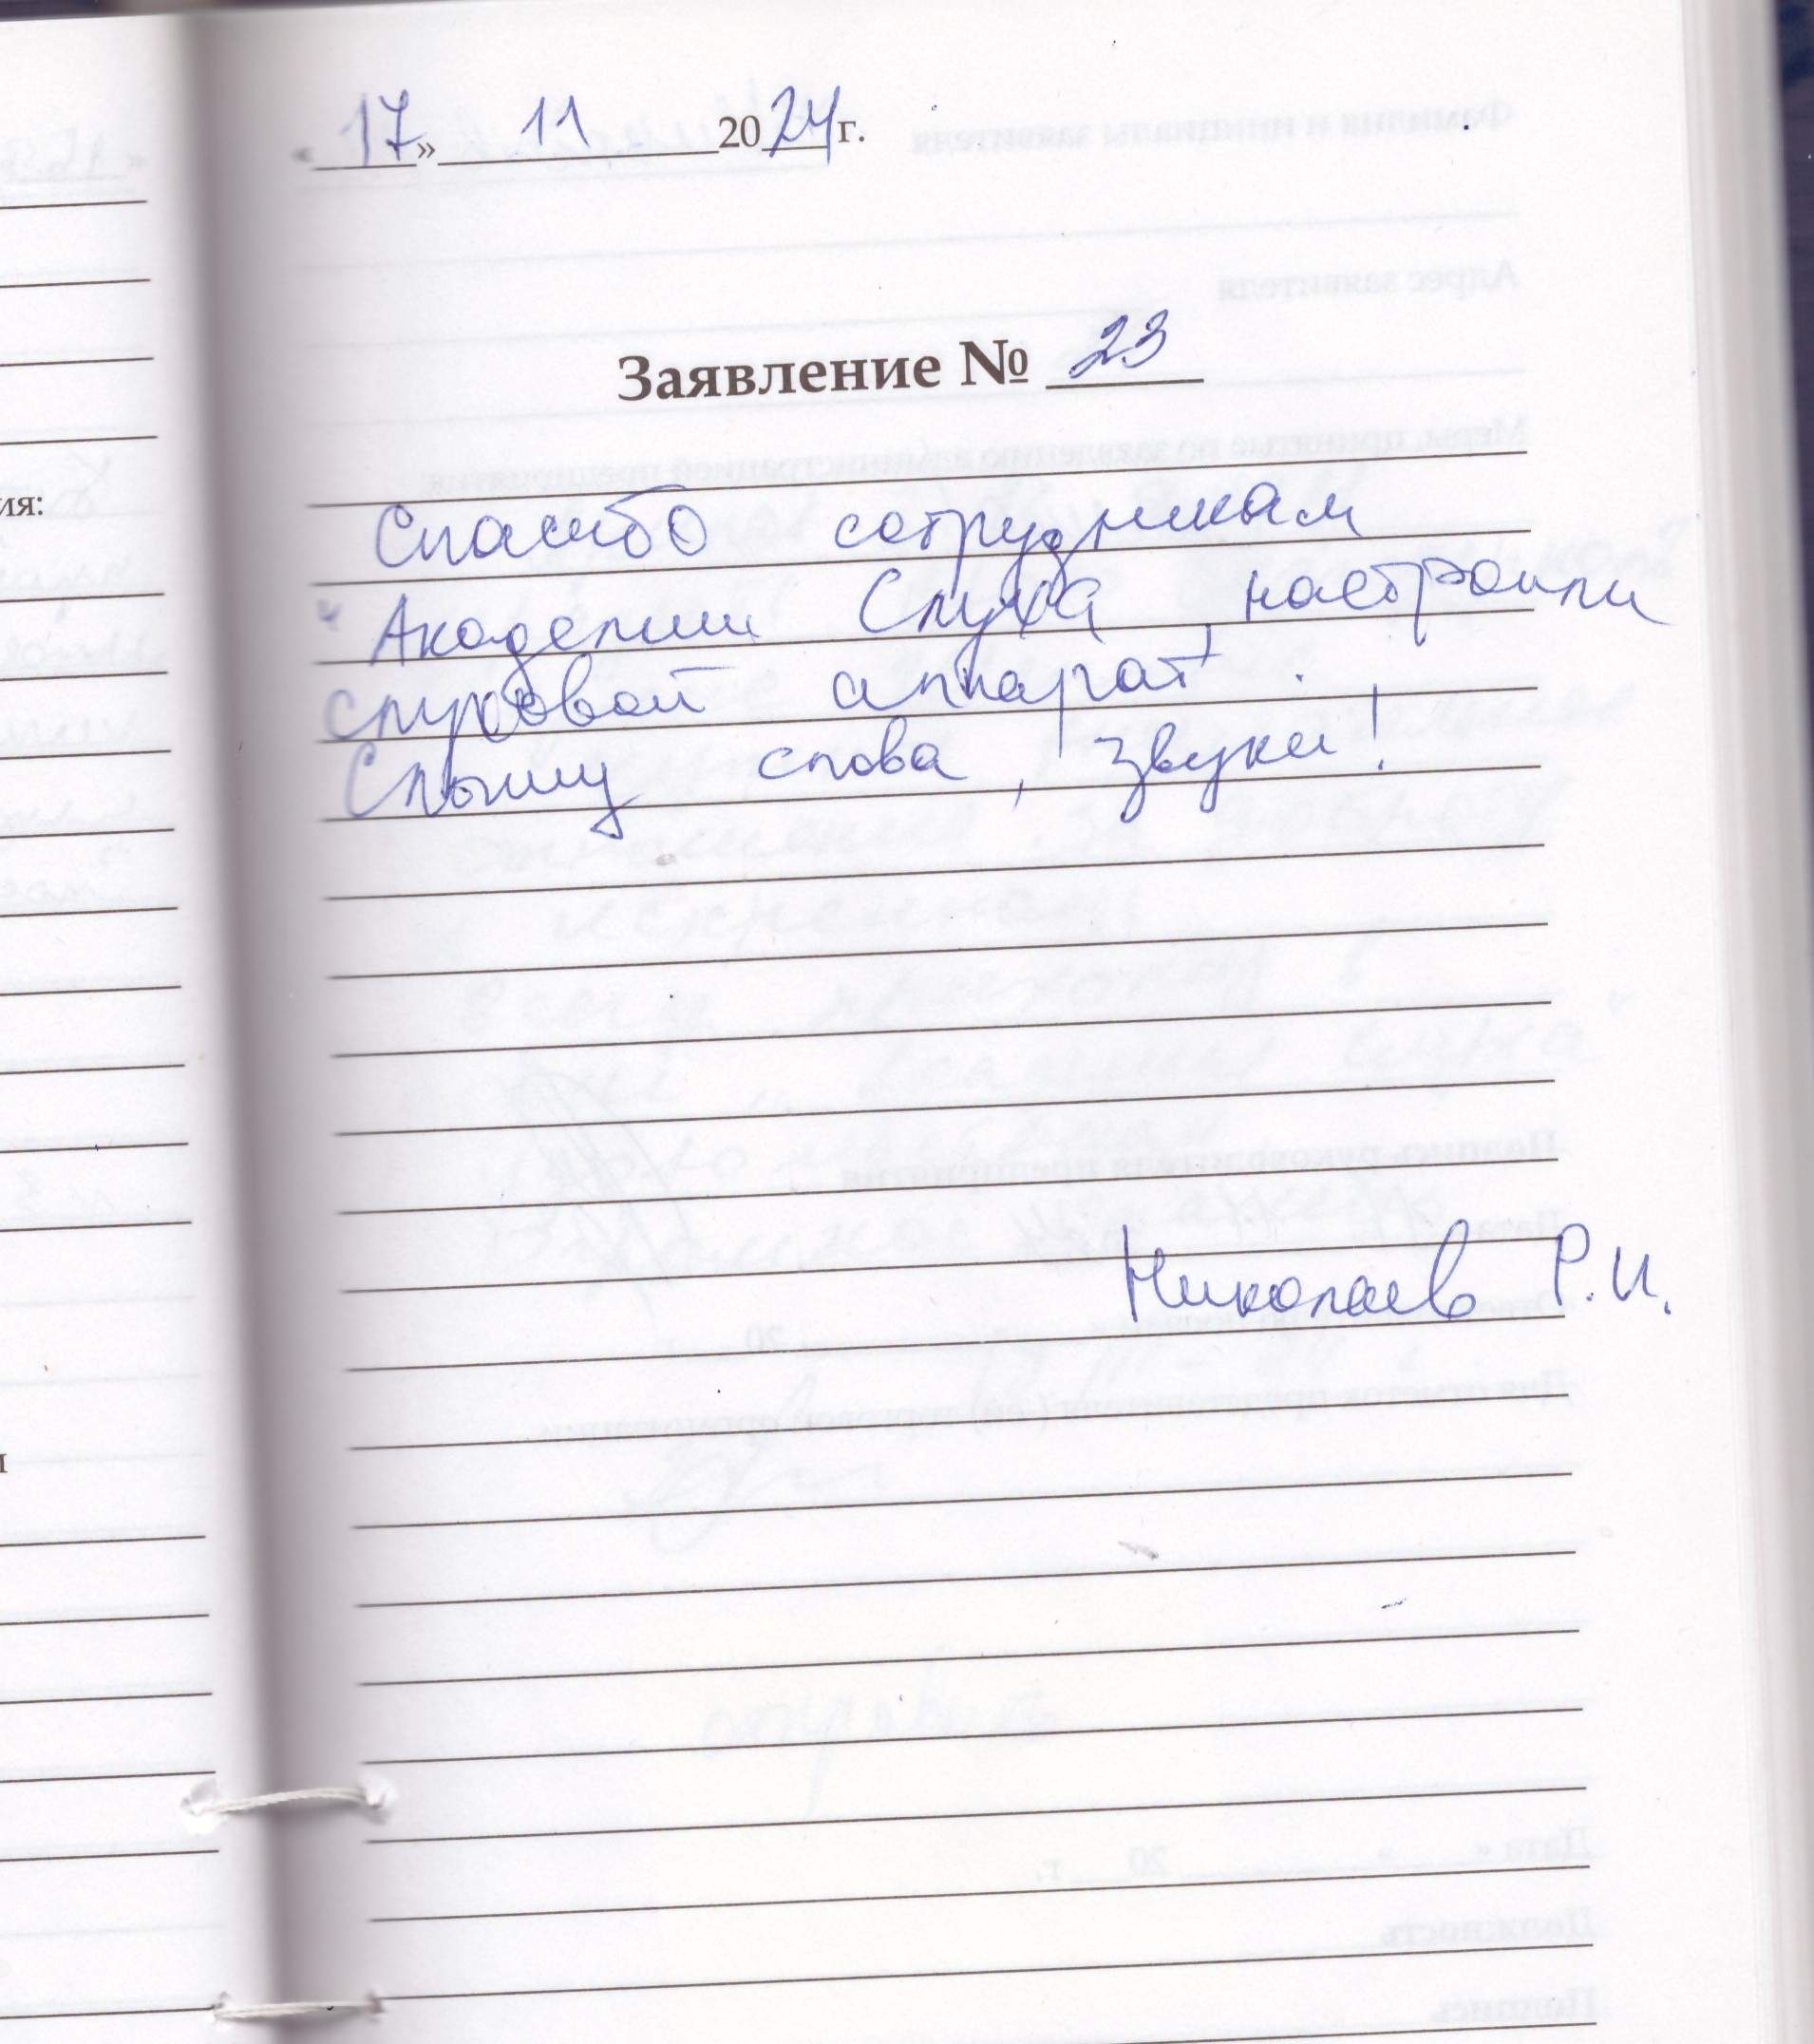 «17» 11 2024 г.
Заявление № 23
Спасибо сотрудникам
"Академии Слуха настроили
слуховой аппарат!
Слышу слова, звуки!
Николаев Р.И.
ия: